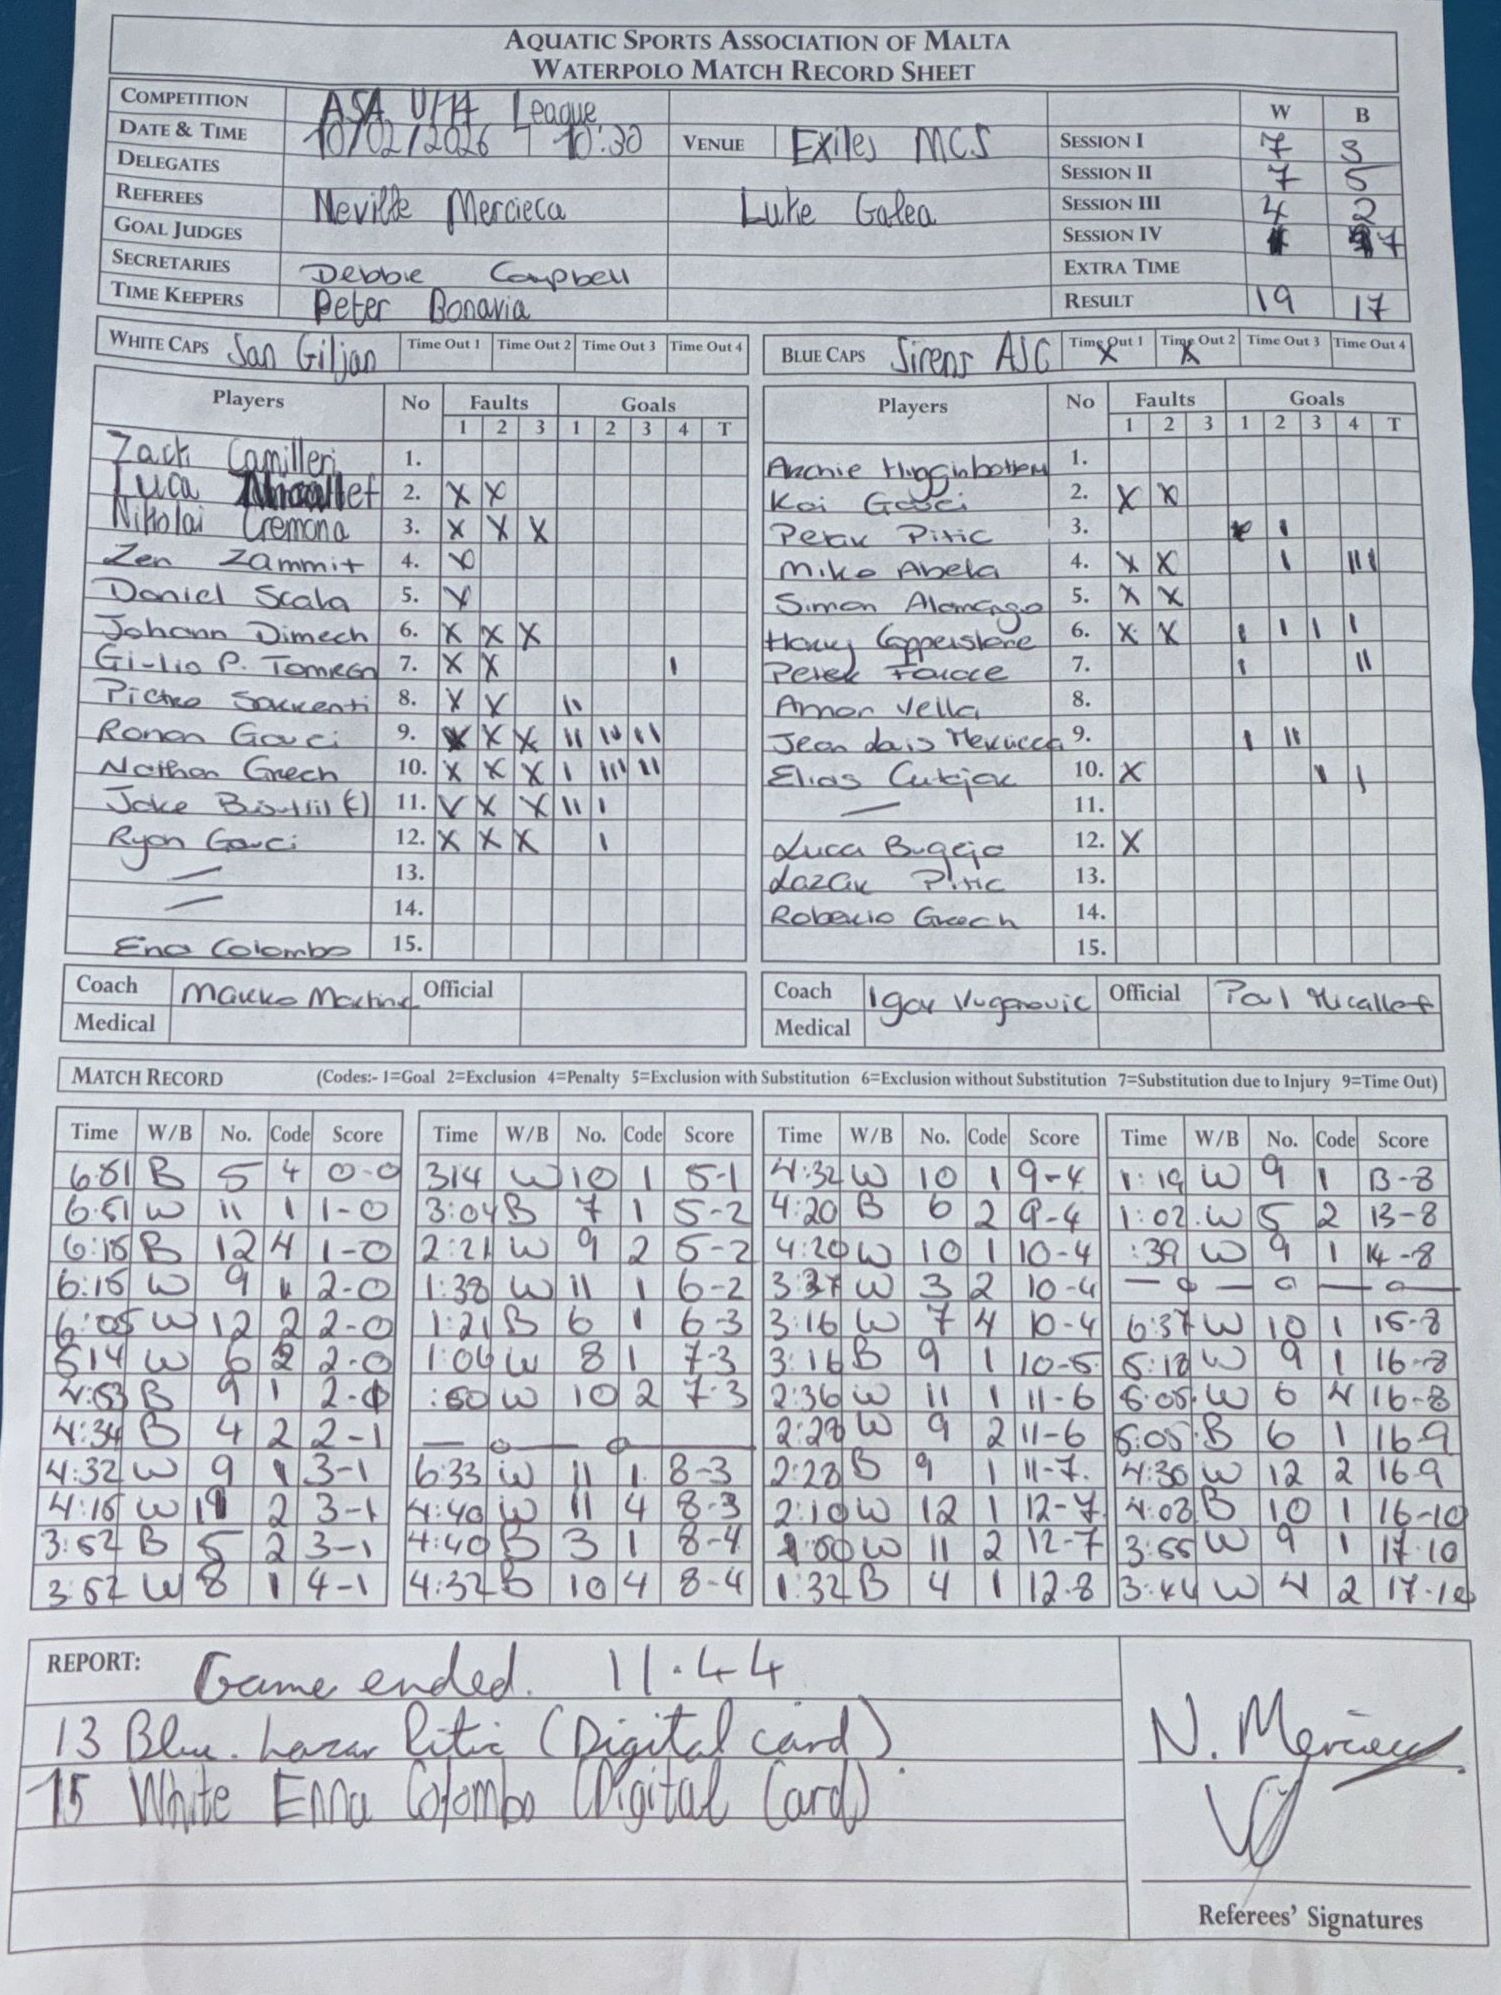 AQUATIC SPORTS ASSOCIATION OF MALTA
WATERPOLO MATCH RECORD SHEET
COMPETITION ASA U/14 League W B
DATE & TIME 10/02/2026 10:30 VENUE Exiles MCS SESSION I 7 3
DELEGATES SESSION II 7 5
REFEREES Neville Mercieca Luke Galea SESSION III 4 2
GOAL JUDGES SESSION IV 7
SECRETARIES Debbie Campbell EXTRA TIME
TIME KEEPERS Peter Bonavia RESULT 19 17
WHITE CAPS San Giljan Time Out 1 Time Out 2 Time Out 3 Time Out 4
BLUE CAPS Sirens ASC Time Out 1 X Time Out 2 X Time Out 3 Time Out 4
Players No Faults Goals
1 2 3 1 2 3 4 T
Zack Camilleri 1.
Luca 2. X X
Nikolai Cremona 3. X X X
Zen Zammit 4. X
Daniel Scala 5. X
Johann Dimech 6. X X X
Giulio P. 7. X X I
Pietro 8. X X II
Ronan Gauci 9. X X X II II II
Nathan Grech 10. X X X I III II
Jake 11. X X X II I
Ryan Gauci 12. X X X I
— 13.
— 14.
Ena Colombo 15.
Players No Faults Goals
1 2 3 1 2 3 4 T
Archie Higginbottem 1.
Kai Gauci 2. X X
Petar Pitic 3. I I
Miko Abela 4. X X I III
Simon 5. X X
Harry Copperstone 6. X X I I I I
Peter 7. I II
Aman Vella 8.
Jean 9. I II
Elias 10. X I I
— 11.
Luca Bugeja 12. X
Lazar Pitic 13.
Grech 14.
15.
Coach Marko Official
Medical
Coach Igor Official Paul Micallef
Medical
MATCH RECORD (Codes:- 1=Goal 2=Exclusion 4=Penalty 5=Exclusion with Substitution 6=Exclusion without Substitution 7=Substitution due to Injury 9=Time Out)
Time W/B No. Code Score
6:51 B 5 4 0-0
6:51 W 11 1 1-0
6:15 B 12 4 1-0
6:15 W 9 1 2-0
6:05 W 12 2 2-0
5:14 W 6 2 2-0
4:53 B 9 1 2-1
4:34 B 4 2 2-1
4:32 W 9 1 3-1
4:15 W 11 2 3-1
3:52 B 5 2 3-1
3:52 W 8 1 4-1
Time W/B No. Code Score
3:14 W 10 1 5-1
3:04 B 7 1 5-2
2:21 W 9 2 5-2
1:38 W 11 1 6-2
1:21 B 6 1 6-3
1:06 W 8 1 7-3
:50 W 10 2 7-3
6:33 W 11 1 8-3
4:40 W 11 4 8-3
4:40 B 3 1 8-4
4:32 B 10 4 8-4
Time W/B No. Code Score
4:32 W 10 1 9-4
4:20 B 6 2 9-4
4:20 W 10 1 10-4
3:37 W 3 2 10-4
3:16 W 7 4 10-4
3:16 B 9 1 10-5
2:36 W 11 1 11-6
2:28 W 9 2 11-6
2:28 B 9 1 11-7
2:10 W 12 1 12-7
W 11 2 12-7
1:32 B 4 1 12-8
Time W/B No. Code Score
1:19 W 9 1 13-8
1:02 W 5 2 13-8
:39 W 9 1 14-8
6:37 W 10 1 15-8
5:18 W 9 1 16-8
5:05 W 6 4 16-8
5:05 B 6 1 16-9
4:30 W 12 2 16-9
4:03 B 10 1 16-10
3:55 W 9 1 17-10
3:44 W 4 2 17-10
REPORT: Game ended. 11.44
13 Blue. Lazar Pitic (Digital card).
15 White Enna Colombo (Digital Card)
N. Mercieca
Referees' Signatures